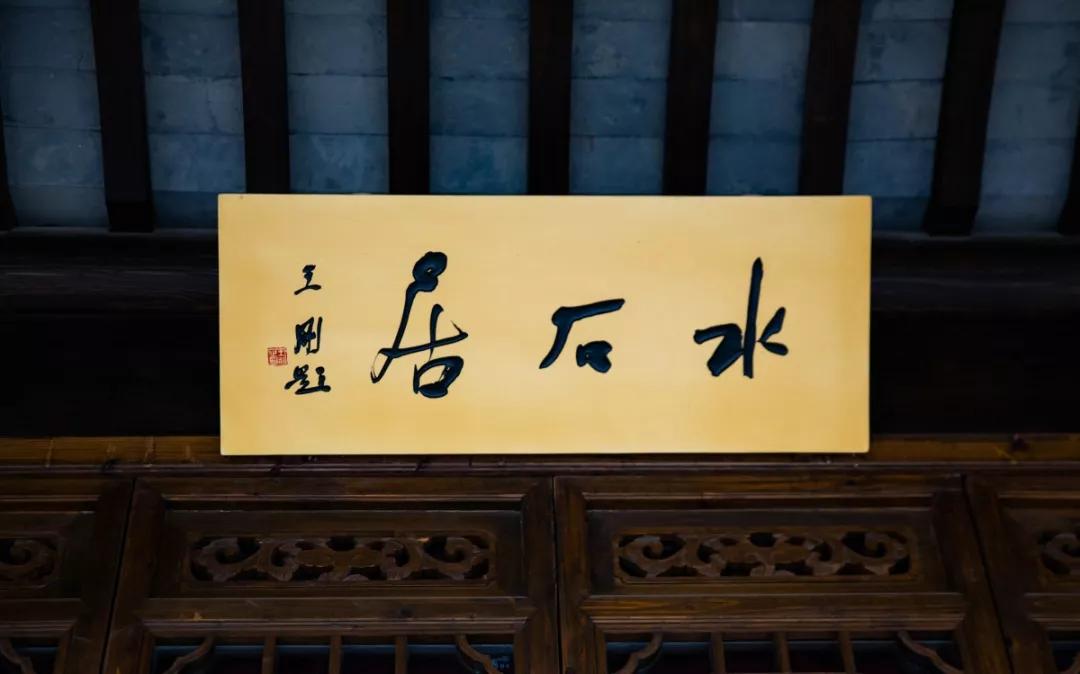 水石居
王刚题